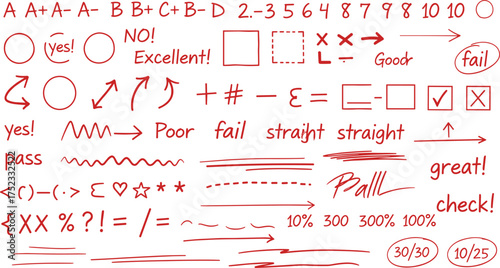 A A+ A- A- B B+ C+ B- D 2.-3 5 6 4 8 7 9 8 8 10 10
yes! NO! Excellent! x x Good fail
+ # - ε = -
yes! Poor fail straight straight
ass
great!
( ) - ( · > ε * * Ball check!
XX % ? ! = / = 10% 300 300% 100%
30/30 10/25